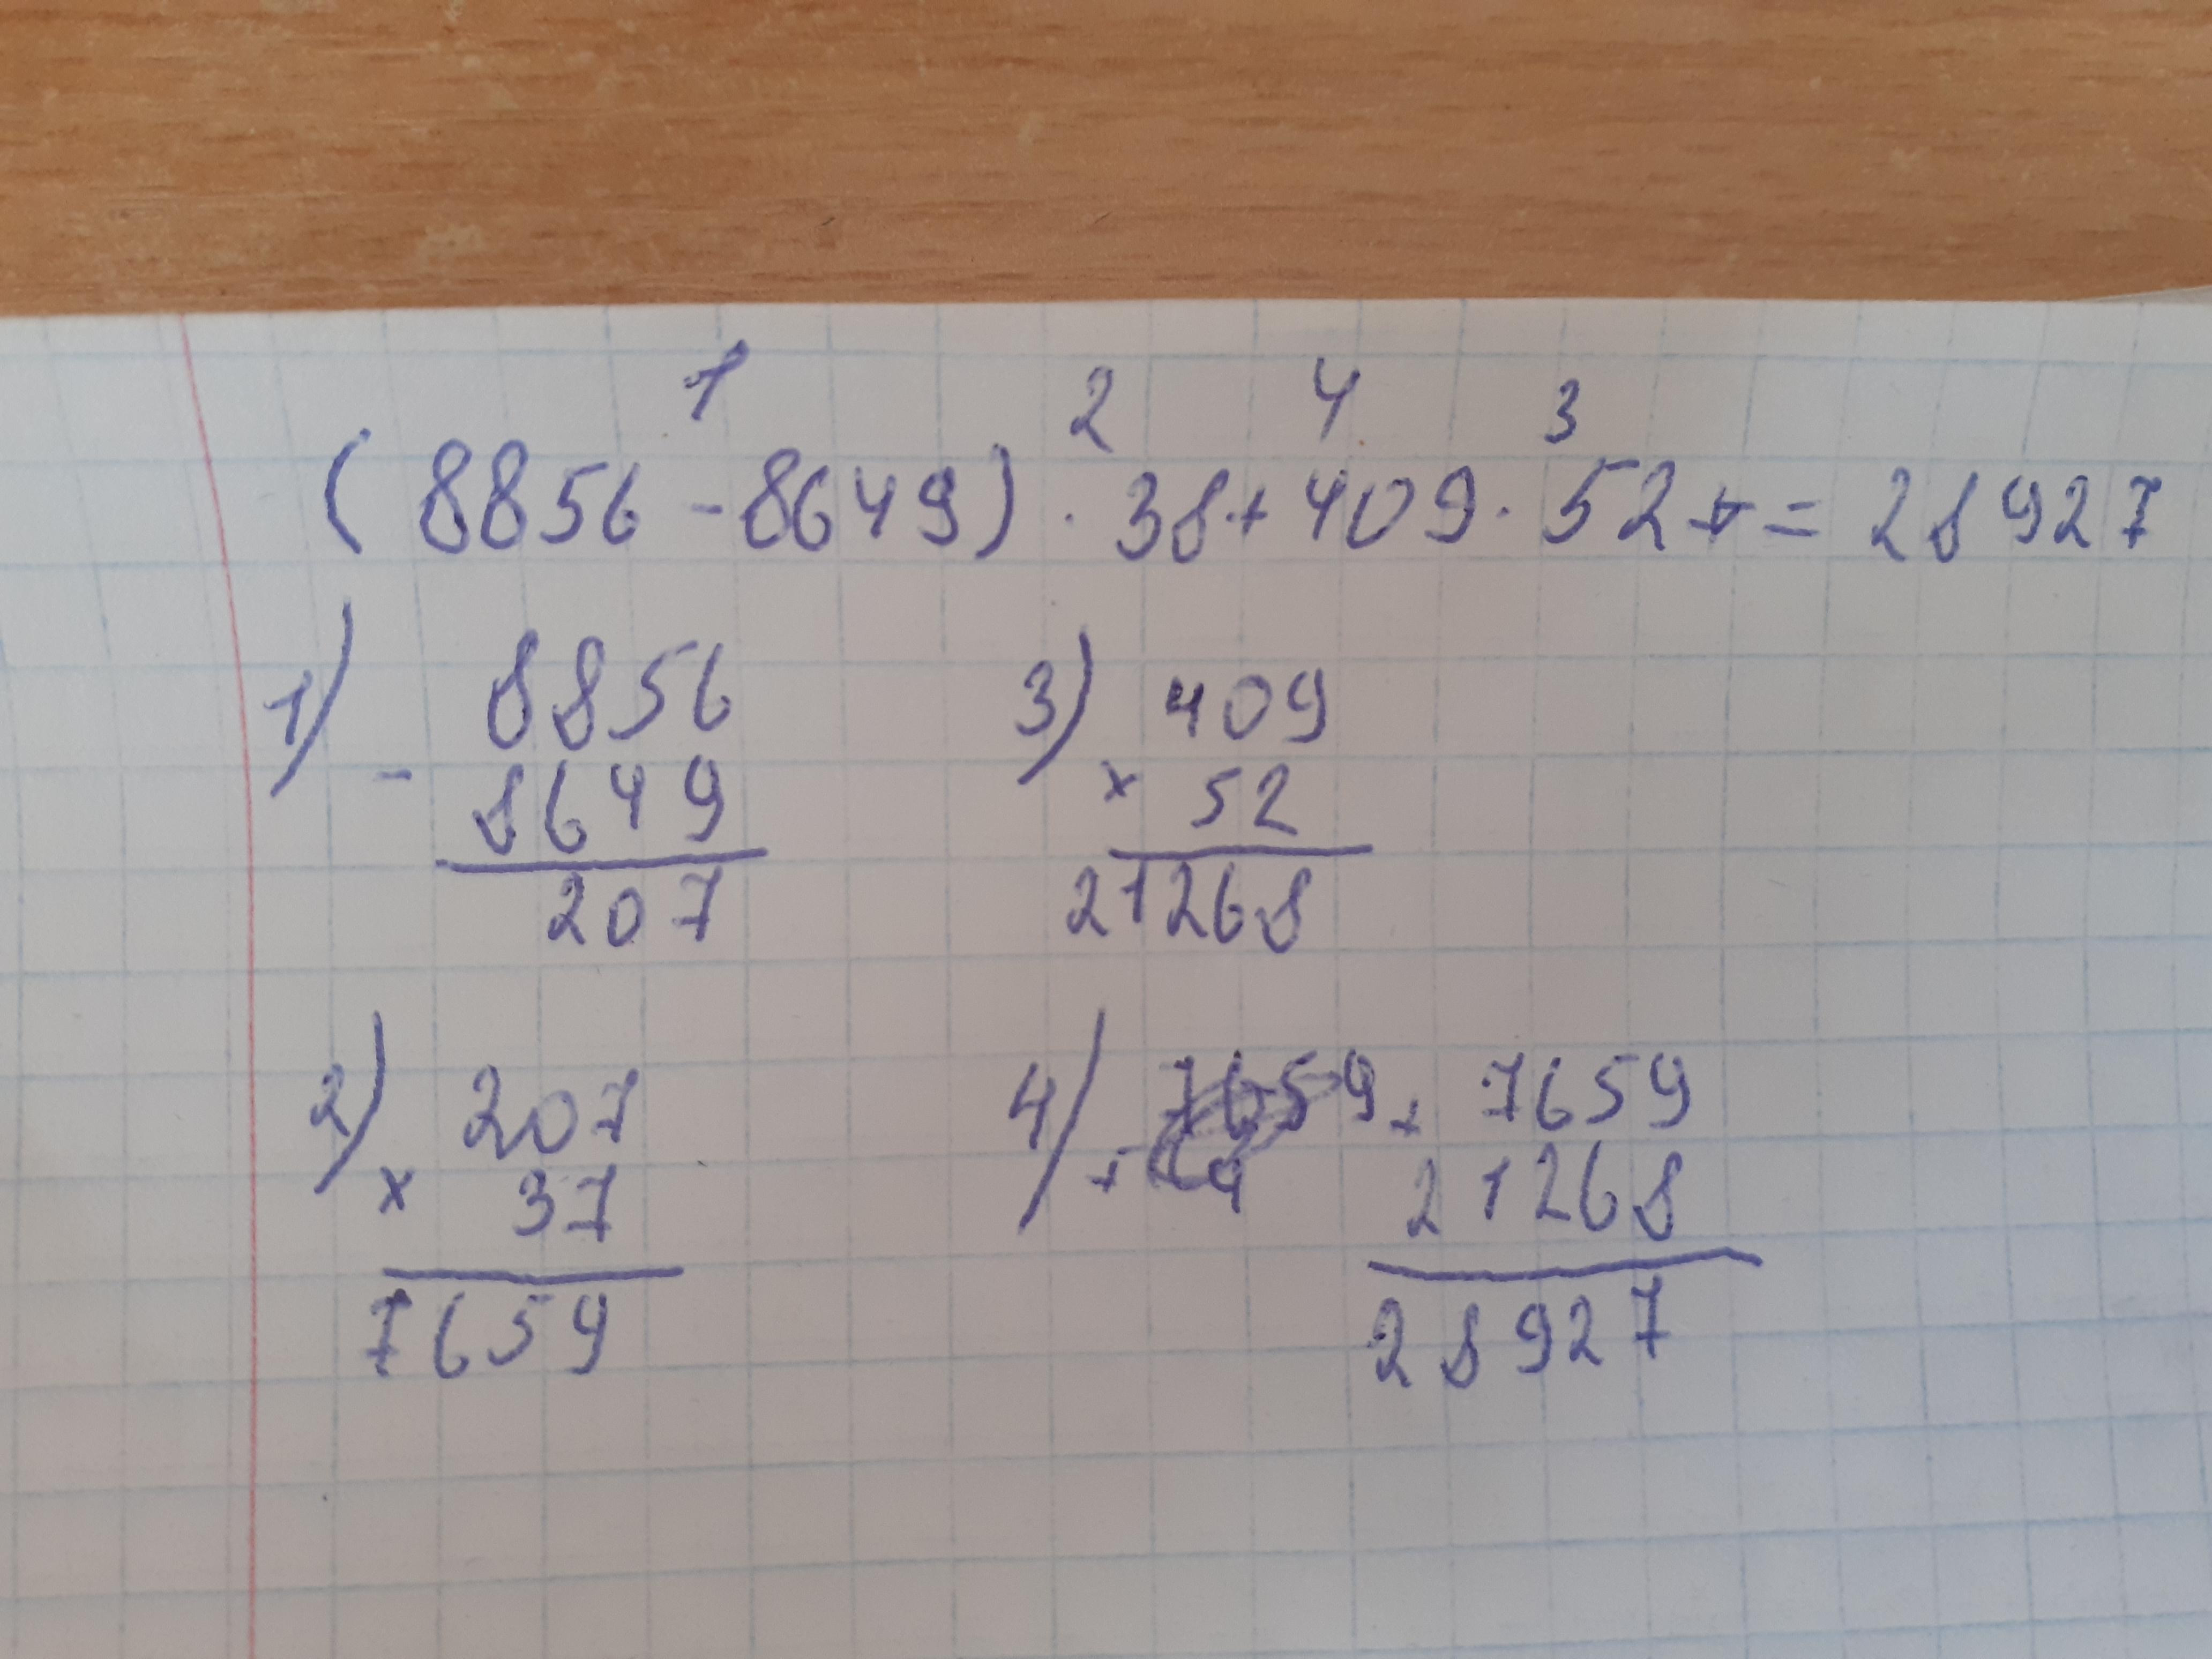 1 2 4 3
(8856 - 8649) · 38 + 409 · 52 + = 28927
1) 8856
- 8649
207
3) 409
× 52
21268
2) 207
× 37
7659
4) 7659 + 7659
+ 21268
28927